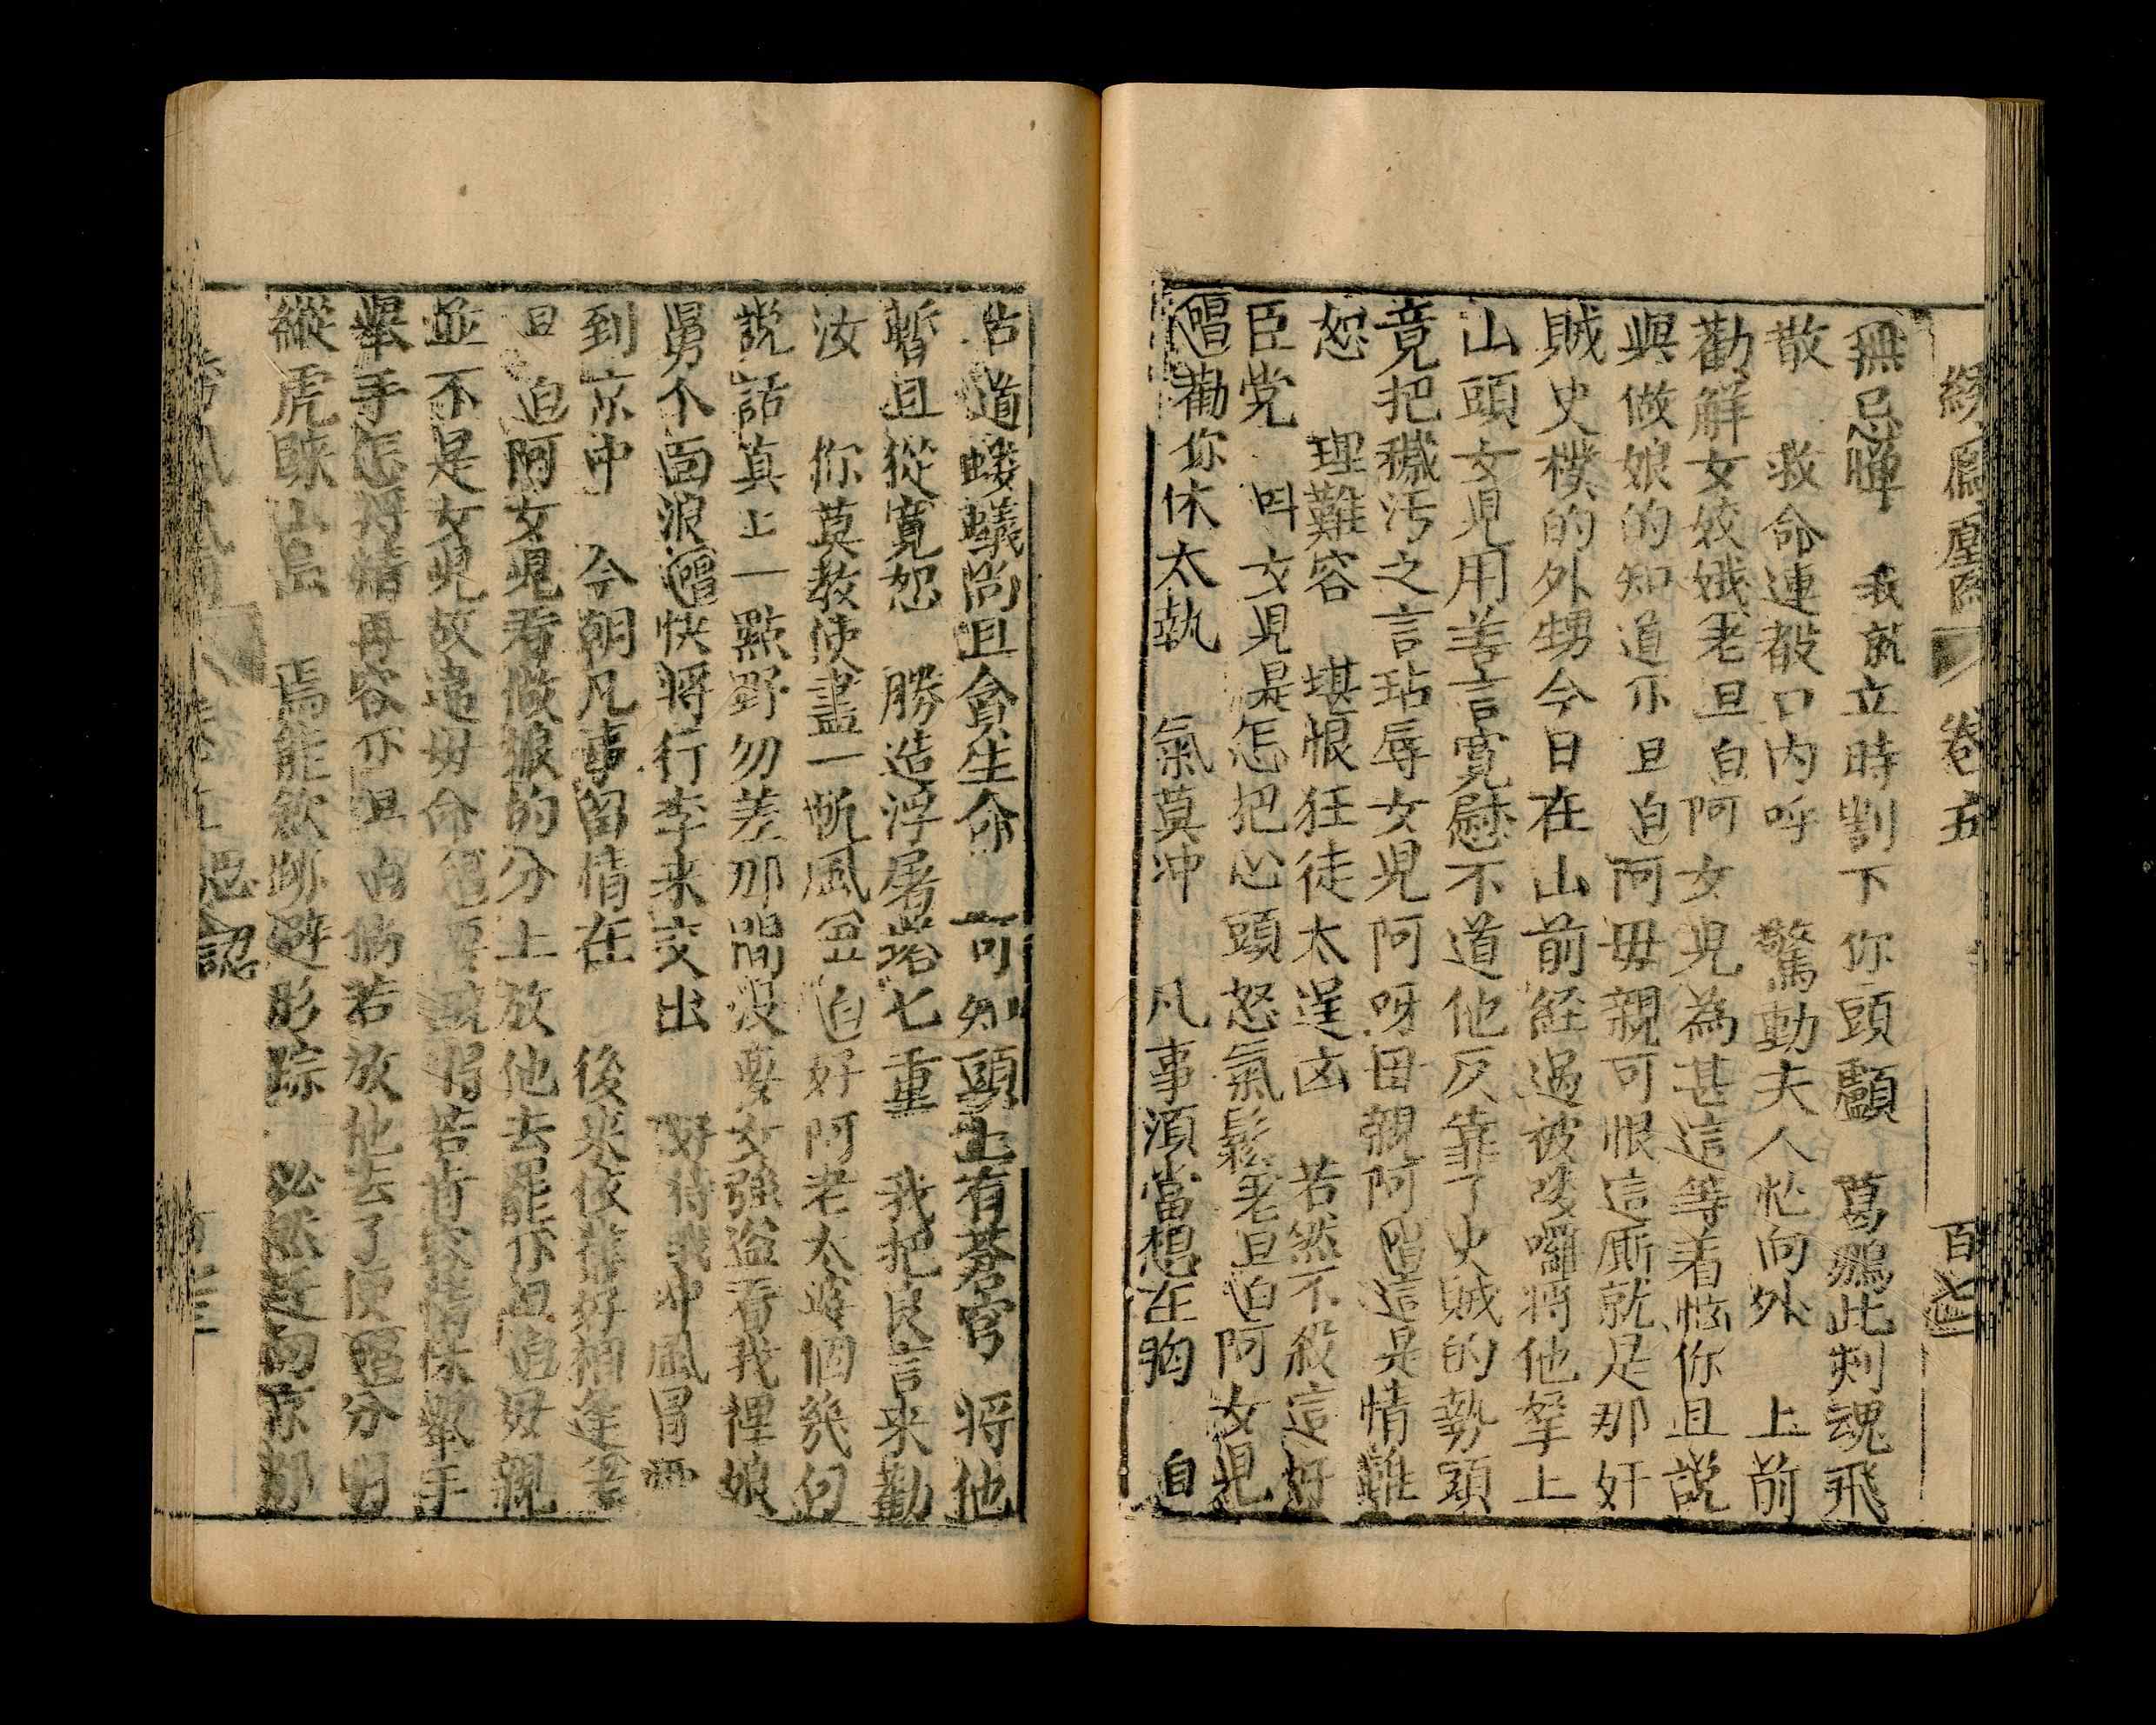 綉鳳凰 卷五 百
無忌暉 我就立時割下你頭顱 葛鵬此刻魂飛
散 救命連教口內呼 驚動夫人忙向外 上前
勸解女姣娥老旦白阿女児為甚這等着惱你且說
與做娘的知道介旦白阿毋親可恨這廝就是那奸
賊史樸的外甥今日在山前経過被嘍囉将他拏上
山頭女児用善言寬慰不道他反靠了史賊的勢頭
竟把穢汚之言玷辱女児阿呀毋親阿唱這是情難
恕 理難容 堪恨狂徒太逞凶 若然不殺這奸
臣党 呌女児是怎把心頭怒氣鬆老旦白阿女児
唱勸你休太執 氣莫冲 凡事湏當想在胸 自
古道螻蟻尚且貪生命 可知頭上有蒼穹 将他
暫且從寬恕 勝造浮屠塔七重 我把良言来勸
汝 你莫教使盡一帆風丑白好阿老太這個幾句
說話真正一點勿差那間沒要女強盜看我裡娘
舅个面浪唱快将行李来交出 好待我冲風冒
到京中 今朝凡事留情在 後來依舊好相逢老
旦白阿女児看做娘的分上放他去罷介旦白毋親
並不是女児故違毋命 若肯 情休舉手
舉手怎将情再容介旦白倘若放他去了便唱分明
縱虎歸山岳 焉能斂跡避形踪 必然逆向京都